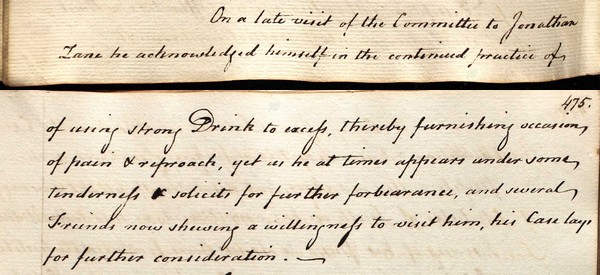 On a late visit of the Committee to Jonathan
Zane he acknowledged himself in the continued practice of
475.
of using strong Drink to excess, thereby furnishing occasion
of pain & reproach, yet as he at times appears under some
tenderness & solicits for further forbearance, and several
Friends now shewing a willingness to visit him, his Case lays
for further consideration. —